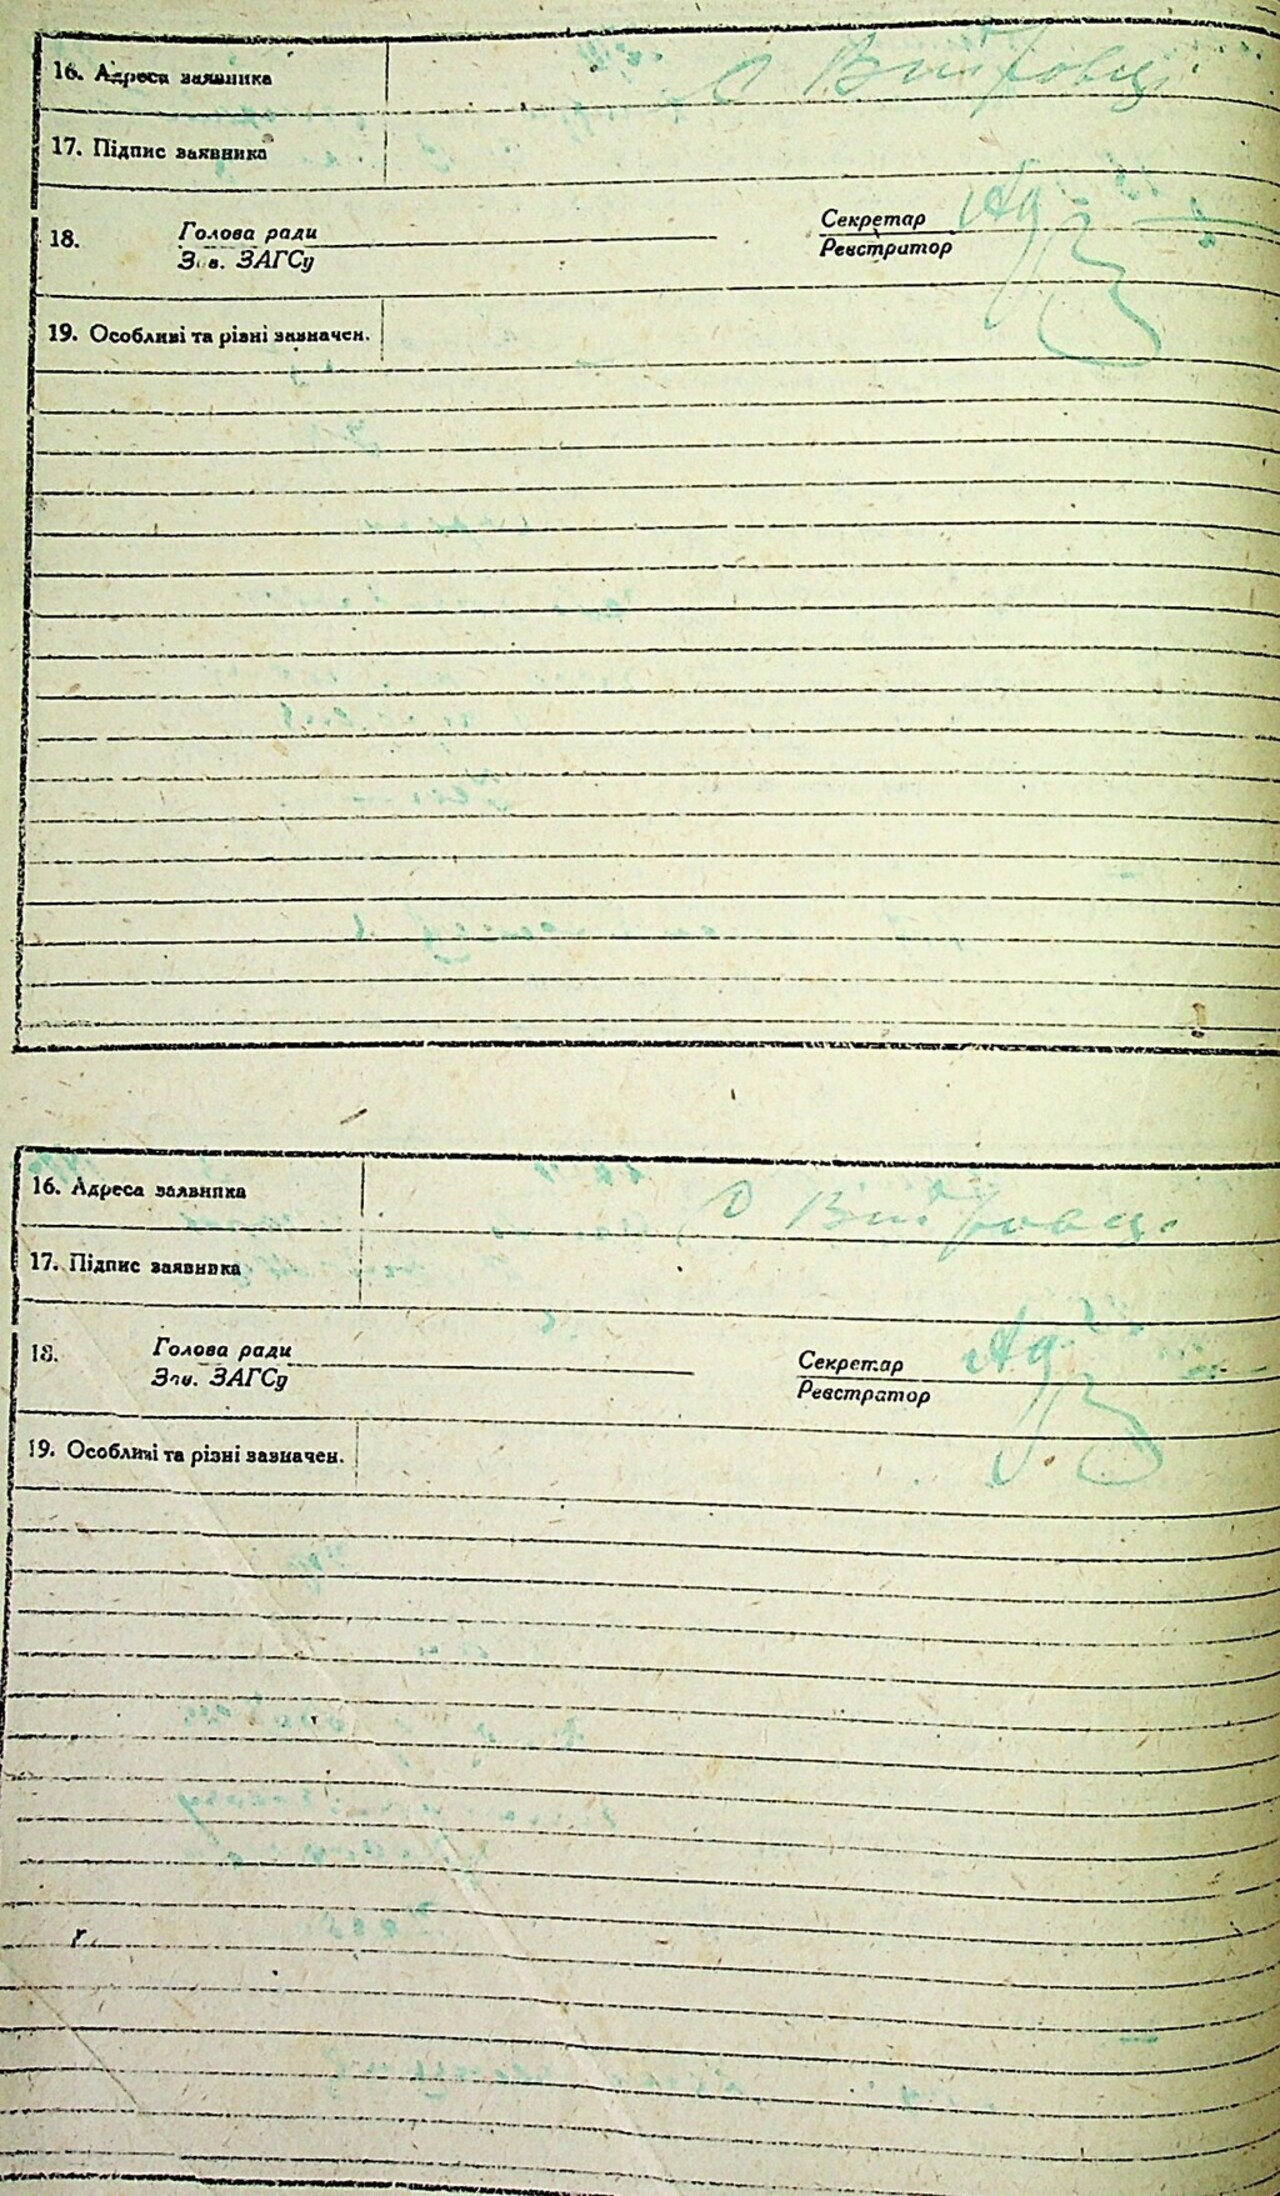 16. Адреса заявника с Вийтовці
17. Підпис заявника
18. Голова ради Секретар
Зав. ЗАГСу Реєстратор
19. Особливі та різні зазначен.
16. Адреса заявника с Вийтовці
17. Підпис заявника
18. Голова ради Секретар
Зав. ЗАГСу Реєстратор
19. Особливі та різні зазначен.